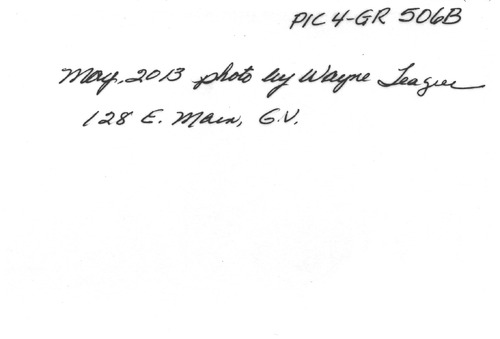 PIC 4-GR 506B
May, 2013 photo by Wayne League
128 E. Main, G.V.